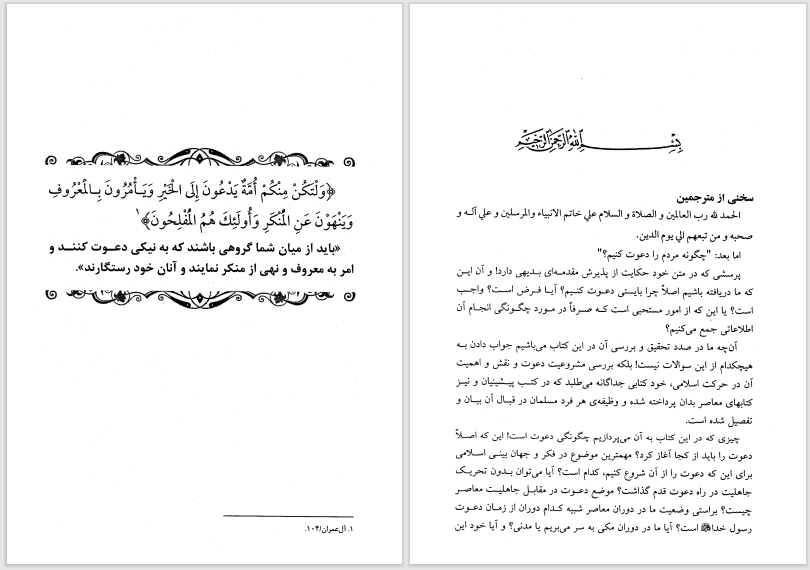 ﴿وَلْتَكُنْ مِنْكُمْ أُمَّةٌ يَدْعُونَ إِلَى الْخَيْرِ وَيَأْمُرُونَ بِالْمَعْرُوفِ
وَيَنْهَوْنَ عَنِ الْمُنْكَرِ وَأُولَئِكَ هُمُ الْمُفْلِحُونَ﴾۱
«باید از میان شما گروهی باشند که به نیکی دعوت کنند و
امر به معروف و نهی از منکر نمایند و آنان خود رستگارند».
۱. آل‌عمران/۱۰۴.
بِسْمِ اللهِ الرَّحْمنِ الرَّحِيمِ
سخنی از مترجمین
الحمد لله رب العالمین و الصلاة و السلام علي خاتم الانبیاء والمرسلین و علي آلـه و
صحبه و من تبعهم الي یوم الدین.
اما بعد: "چگونه مردم را دعوت کنیم؟"
پرسشی که در متن خود حکایت از پذیرش مقدمه‌ای بدیهی دارد! و آن ایـن
که ما دریافته باشیم اصلاً چرا بایستی دعوت کنـیم؟ آیـا فـرض اسـت؟ واجـب
است؟ یا این که از امور مستحبی است کـه صـرفاً در مـورد چگـونگی انجـام آن
اطلاعاتی جمع می‌کنیم؟
آن‌چه ما در صدد تحقیق و بررسی آن در این کتاب می‌باشیم جواب دادن بـه
هیچکدام از این سوالات نیست! بلکه بررسی مشروعیت دعوت و نقش و اهمیت
آن در حرکت اسلامی، خود کتابی جداگانه می‌طلبد که در کتـب پیـشینیان و نیـز
کتابهای معاصر بدان پرداخته شده و وظیفه‌ی هر فرد مسلمان در قبـال آن بیـان و
تفصیل شده است.
چیزی که در این کتاب به آن می‌پردازیم چگونگی دعوت است! این که اصـلاً
دعوت را باید از کجا آغاز کرد؟ مهمترین موضوع در فکر و جهان بینـی اسـلامی
برای این که دعوت را از آن شروع کنیم، کدام است؟ آیا می‌توان بـدون تحریـک
جاهلیت در راه دعوت قدم گذاشت؟ موضع دعـوت در مقابـل جاهلیـت معاصـر
چیست؟ براستی وضعیت ما در دوران معاصر شبیه کـدام دوران از زمـان دعـوت
رسول خداﷺ است؟ آیا ما در دوران مکی به سر می‌بریم یا مدنی؟ و آیا خود این